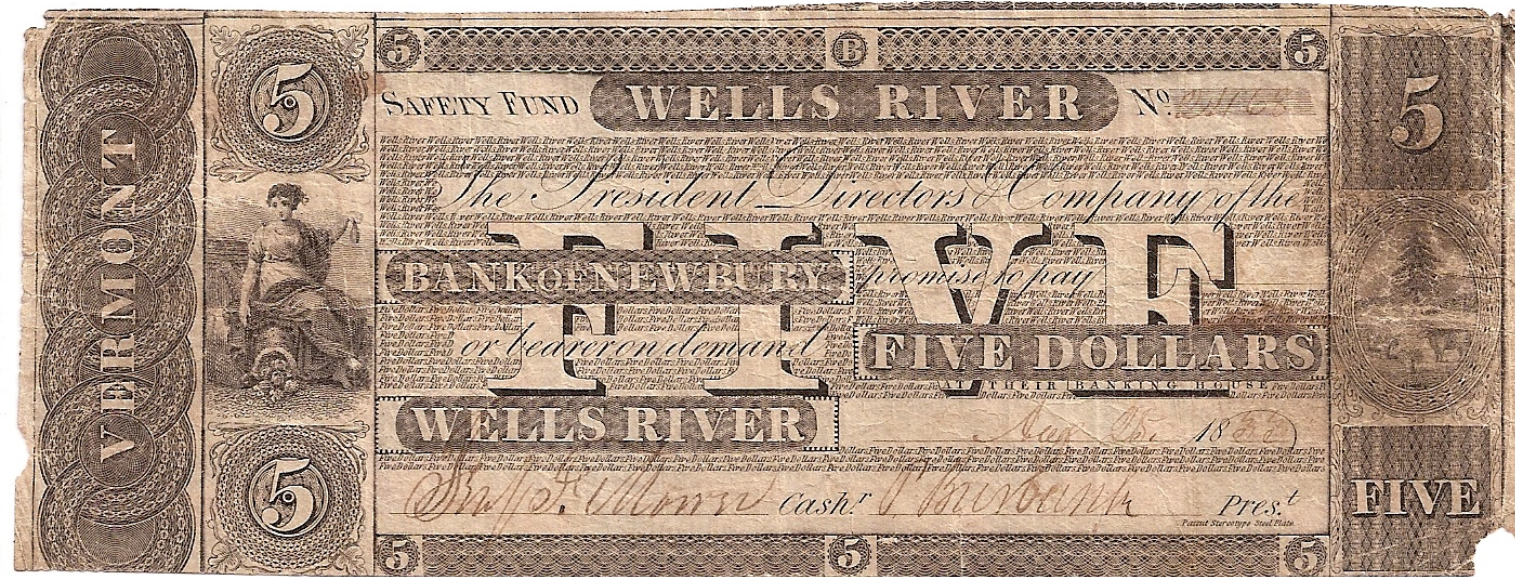 VERMONT
5
5
5 B 5
SAFETY FUND WELLS RIVER No.
The President Directors & Company of the
FIVE
BANK OF NEWBURY promise to pay
or bearer on demand FIVE DOLLARS
AT THEIR BANKING HOUSE
WELLS RIVER Aug 18
Cash.r Burbank Pres.t
Patent Stereotype Steel Plate
5 5 5
5
FIVE